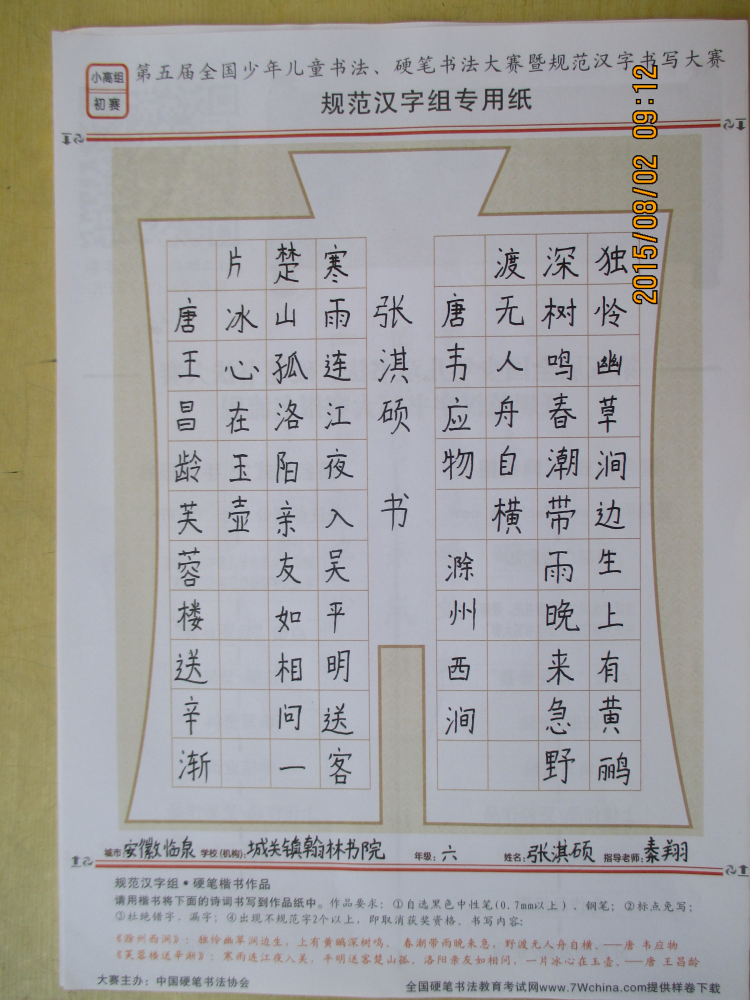 小高组
初赛
第五届全国少年儿童书法、硬笔书法大赛暨规范汉字书写大赛
规范汉字组专用纸
2015/08/02 09:12
独怜幽草涧边生上有黄鹂
深树鸣春潮带雨晚来急野
渡无人舟自横
唐韦应物 滁州西涧
张淇硕 书
寒雨连江夜入吴平明送客
楚山孤洛阳亲友如相问一
片冰心在玉壶
唐王昌龄芙蓉楼送辛渐
城市:安徽临泉 学校(机构):城关镇翰林书院 年级:六 姓名:张淇硕 指导老师:秦翔
规范汉字组•硬笔楷书作品
请用楷书将下面的诗词书写到作品纸中。作品要求:①自选黑色中性笔(0.7mm以上)、钢笔;②标点免写;
③杜绝错字、漏字;④出现不规范字2个以上,即取消获奖资格。书写内容:
《滁州西涧》:独怜幽草涧边生,上有黄鹂深树鸣。春潮带雨晚来急,野渡无人舟自横。——唐 韦应物
《芙蓉楼送辛渐》:寒雨连江夜入吴,平明送客楚山孤。洛阳亲友如相问,一片冰心在玉壶。——唐 王昌龄
大赛主办:中国硬笔书法协会 全国硬笔书法教育考试网www.7Wchina.com提供样卷下载